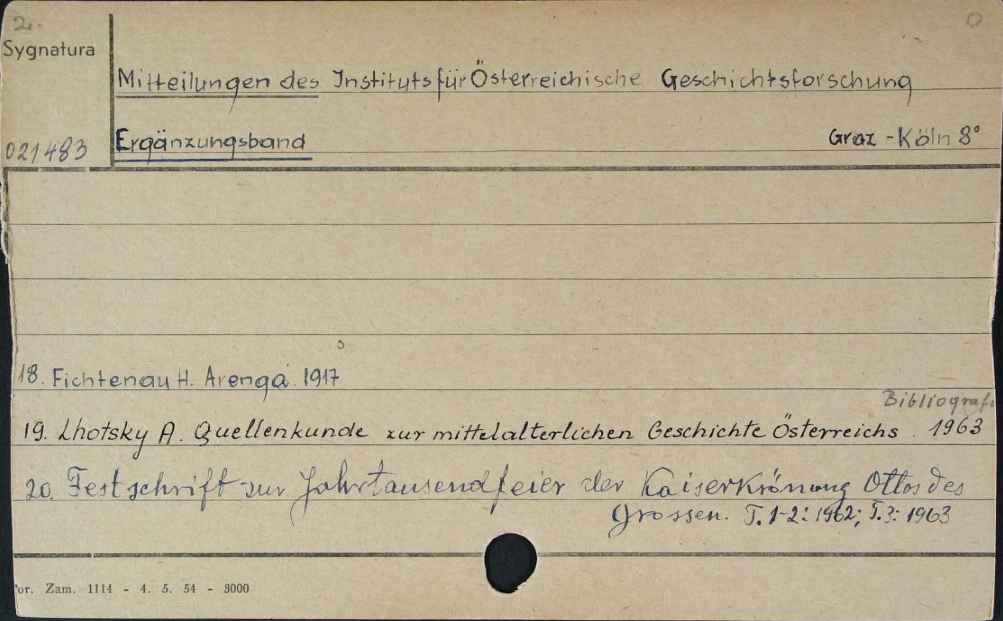 2.
Sygnatura
Mitteilungen des Instituts für Österreichische Geschichtsforschung
021483 Ergänzungsband Graz - Köln 8°
18. Fichtenau H. Arenga. 1917
Bibliografi
19. Lhotsky A. Quellenkunde zur mittelalterlichen Geschichte Österreichs. 1963
20. Festschrift zur Jahrtausendfeier der Kaiserkrönung Ottos des
Grossen. T. 1-2: 1962; T. 3: 1963
or. Zam. 1114 - 4. 5. 54 - 3000